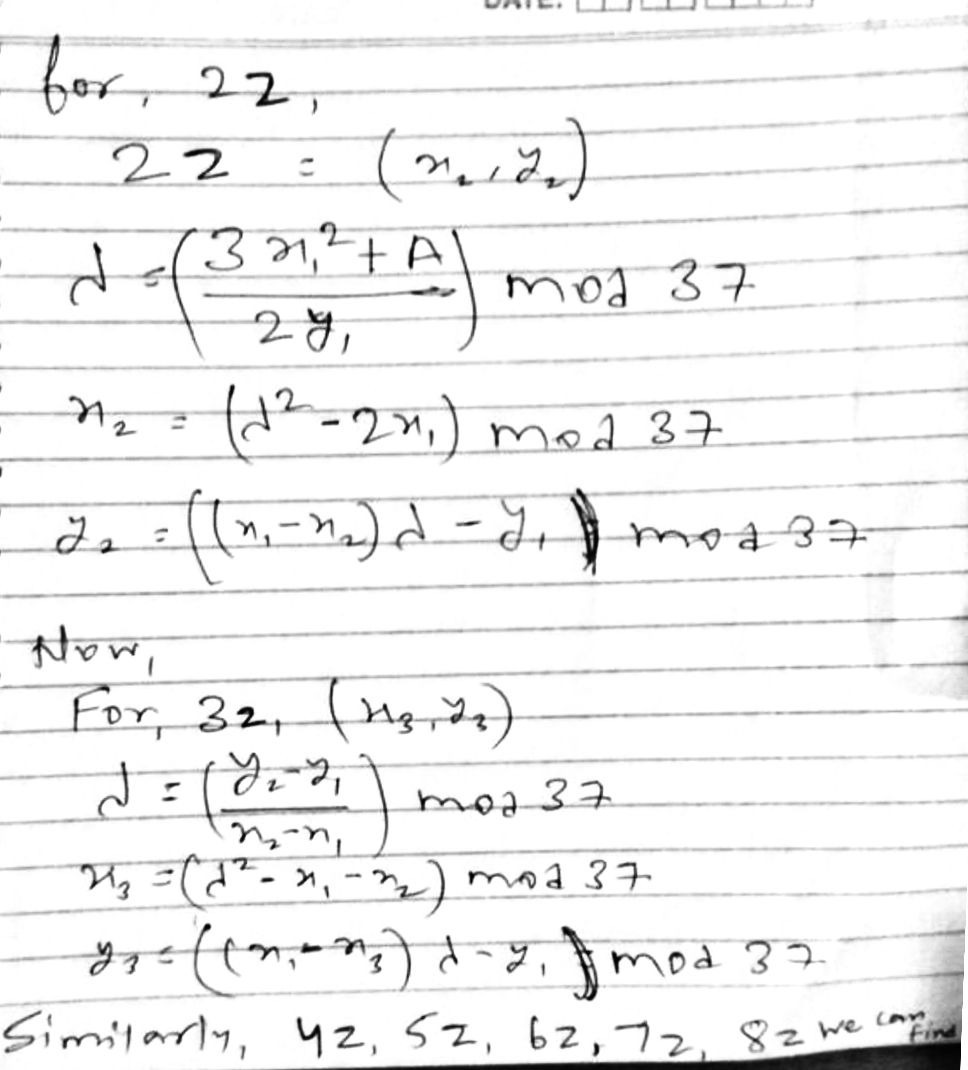 DATE:
for, 2z,
2z = (x₂, y₂)
λ = ((3x₁² + A) / (2y₁)) mod 37
x₂ = (λ² - 2x₁) mod 37
y₂ = ((x₁ - x₂) λ - y₁) mod 37
Now,
For, 3z, (x₃, y₃)
λ = ((y₂ - y₁) / (x₂ - x₁)) mod 37
x₃ = (λ² - x₁ - x₂) mod 37
y₃ = ((x₁ - x₃) λ - y₁) mod 37
Similarly, 4z, 5z, 6z, 7z, 8z we can find